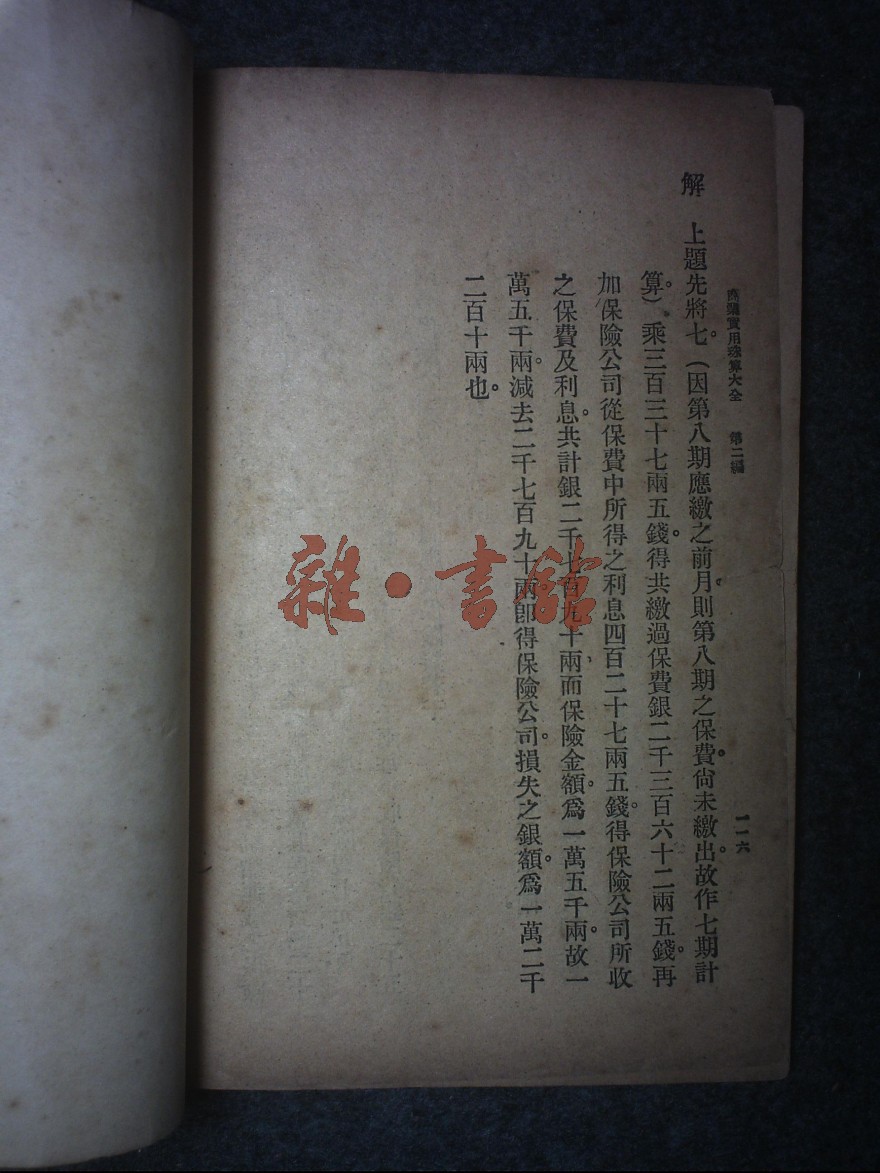 商業實用珠算大全　第二編
一一六
解　上題先將七。（因第八期應繳之前月。則第八期之保費。尙未繳出。故作七期計
算。）乘三百三十七兩五錢。得共繳過保費銀二千三百六十二兩五錢。再
加保險公司從保費中所得之利息四百二十七兩五錢。得保險公司所收
之保費及利息。共計銀二千七百九十兩。而保險金額。爲一萬五千兩。故一
萬五千兩。減去二千七百九十兩。卽得保險公司。損失之銀額。爲一萬二千
二百十兩也。
雜·書館